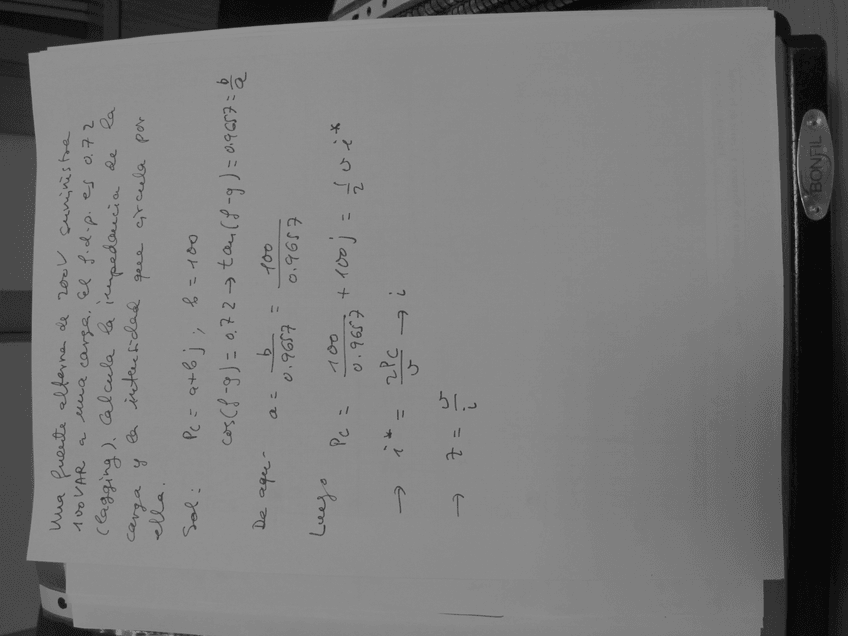 Una fuente alterna de 200V suministra
100VAR a una carga. El f.d.p. es 0.72
(lagging). Calcula la impedancia de la
carga y la intensidad que circula por
ella.
Sol: Pc = a+bj ; b = 100
cos(φ-φ) = 0.72 → tan(φ-φ) = 0.9657 = b/a
De aquí a = b/0.9657 = 100/0.9657
Luego Pc = 100/0.9657 + 100j = 1/2 v i*
→ i* = 2Pc/v → i
→ z = v/i
BONFIL